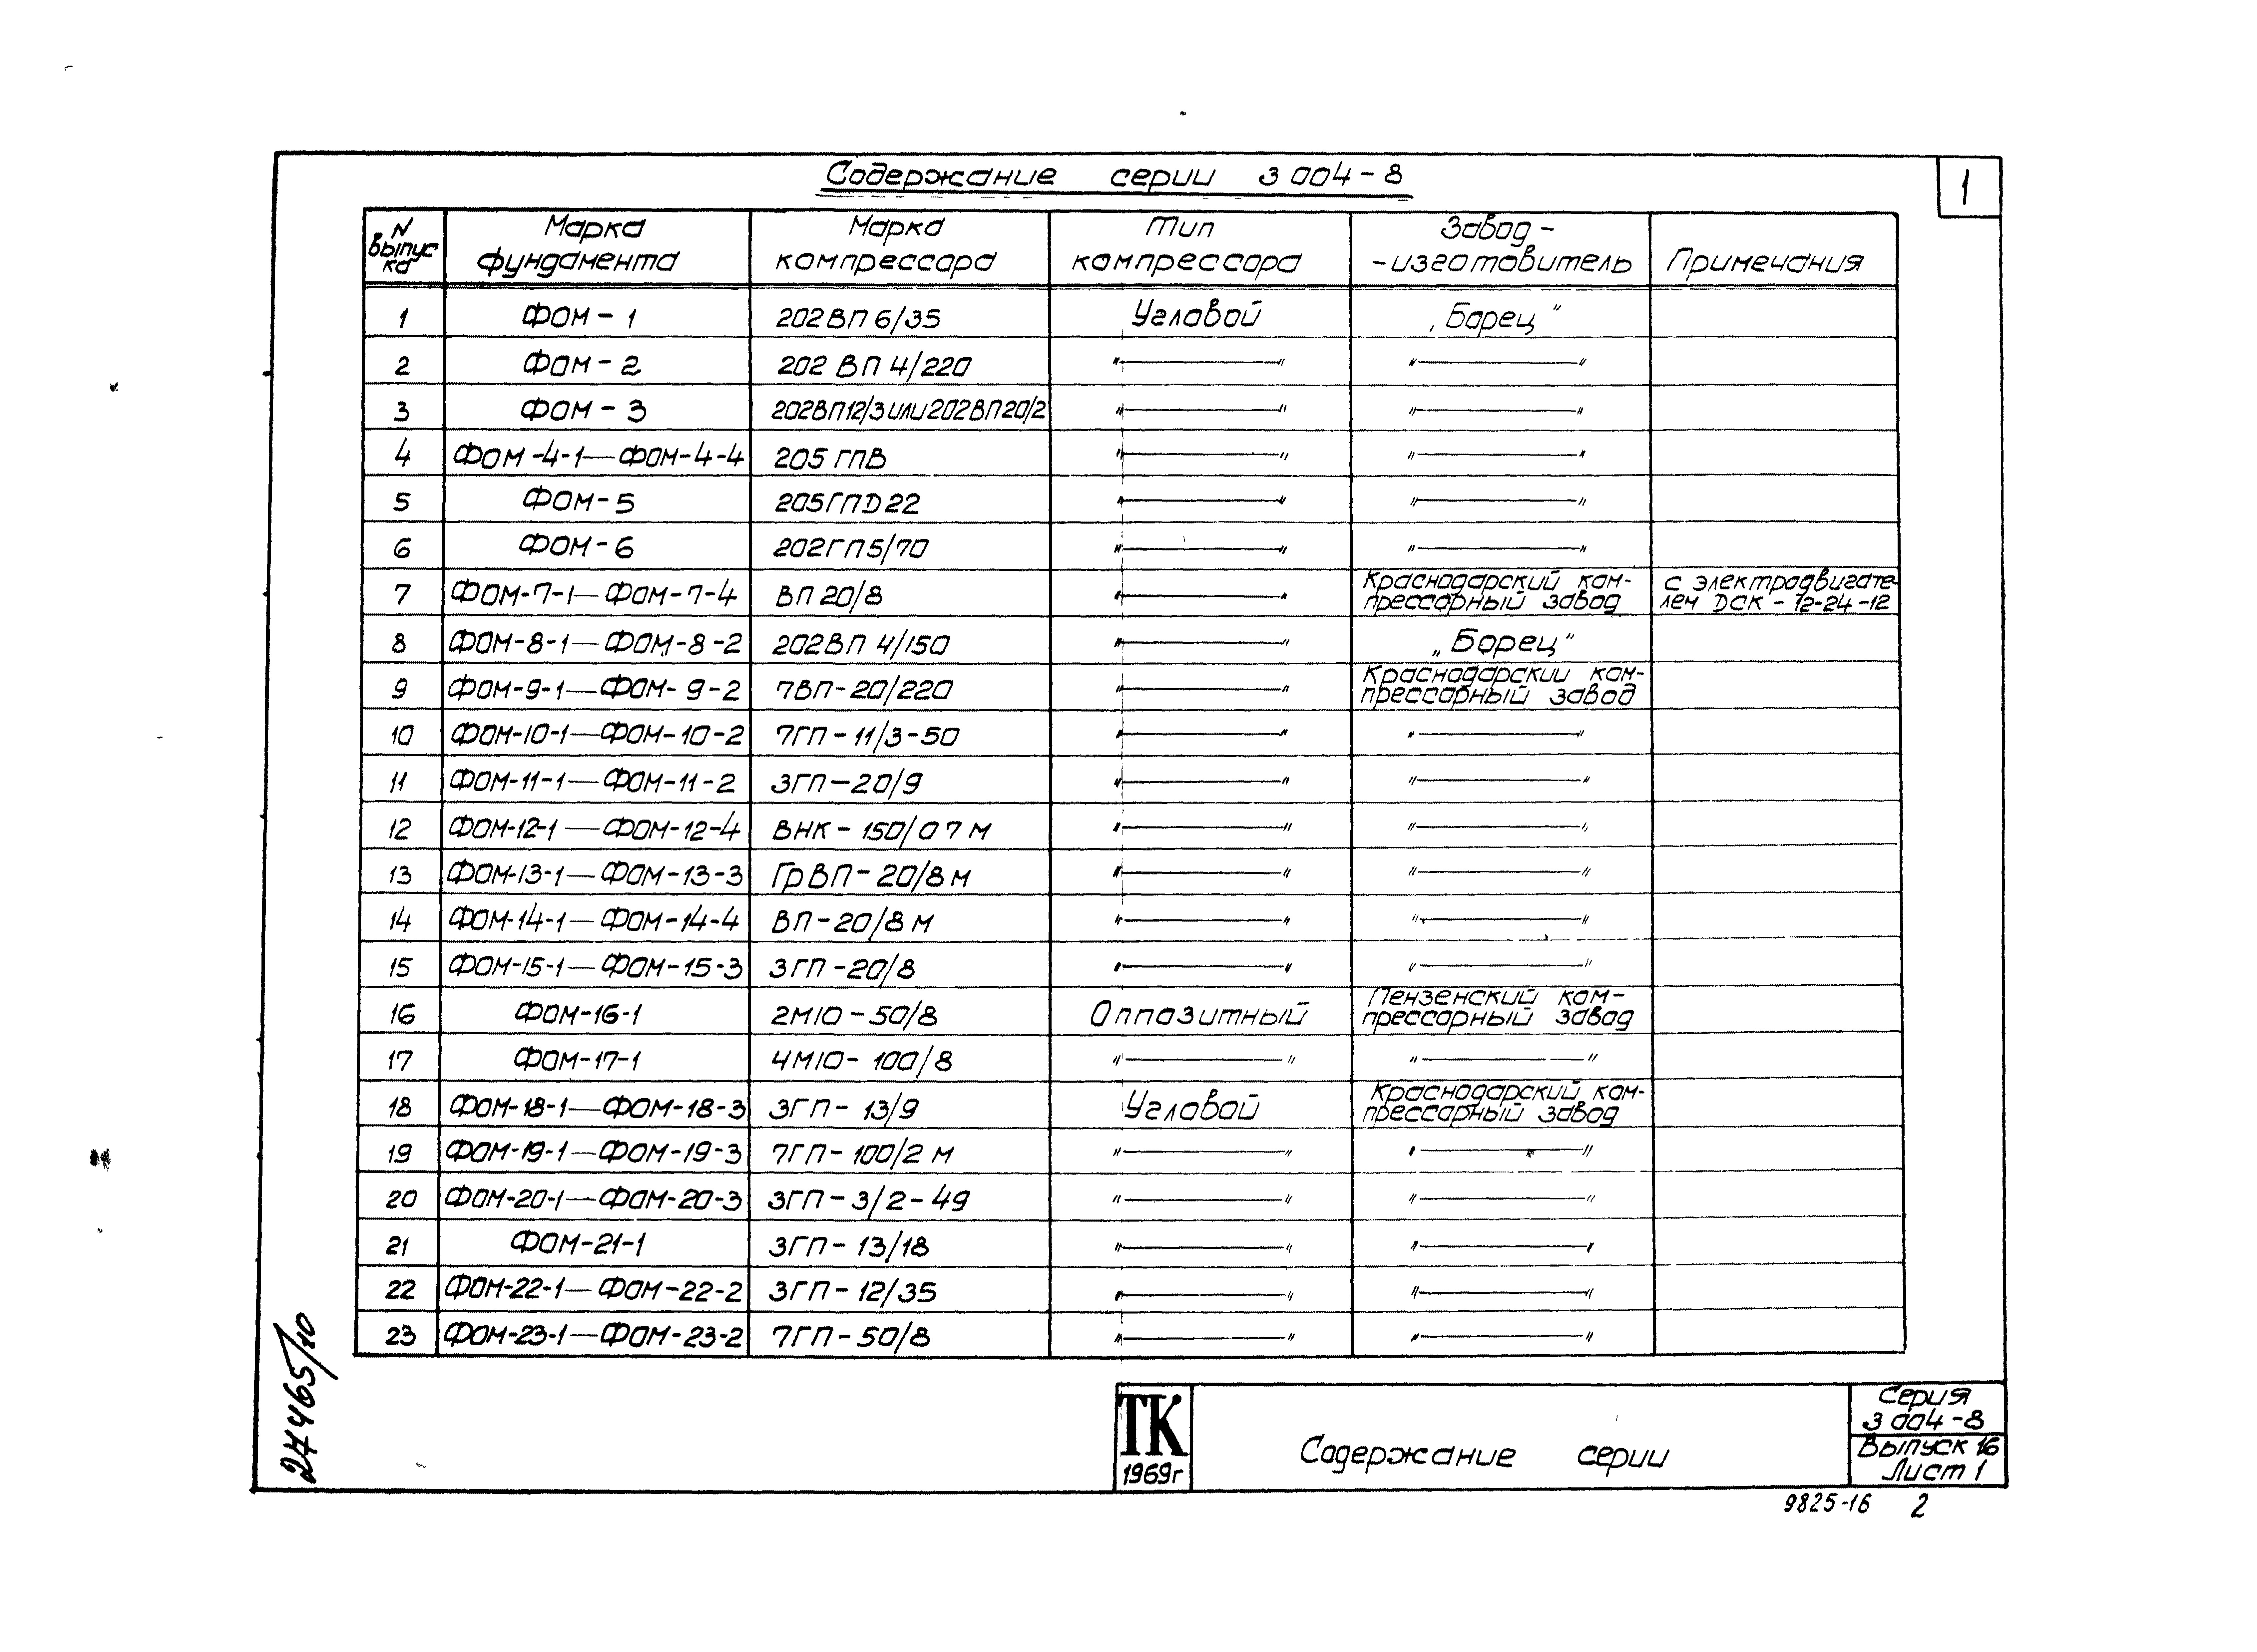 Содержание серии 3 004-8
1
N выпус ка | Марка фундамента | Марка компрессора | Тип компрессора | Завод- -изготовитель | Примечания
1 | ФОМ-1 | 202ВП6/35 | Угловой | „Борец" |
2 | ФОМ-2 | 202 ВП 4/220 | "—" | "—" |
3 | ФОМ-3 | 202ВП12/3или202ВП20/2 | "—" | "—" |
4 | ФОМ-4-1—ФОМ-4-4 | 205 ГПВ | "—" | "—" |
5 | ФОМ-5 | 205ГПD22 | "—" | "—" |
6 | ФОМ-6 | 202ГП5/70 | "—" | "—" |
7 | ФОМ-7-1—ФОМ-7-4 | ВП 20/8 | "—" | Краснодарский ком- прессорный завод | с электродвигате- лем ДСК-12-24-12
8 | ФОМ-8-1—ФОМ-8-2 | 202ВП 4/150 | "—" | „Борец" |
9 | ФОМ-9-1—ФОМ-9-2 | 7ВП-20/220 | "—" | Краснодарский ком- прессорный завод |
10 | ФОМ-10-1—ФОМ-10-2 | 7ГП-11/3-50 | "—" | "—" |
11 | ФОМ-11-1—ФОМ-11-2 | 3ГП-20/9 | "—" | "—" |
12 | ФОМ-12-1—ФОМ-12-4 | ВНК-150/07М | "—" | "—" |
13 | ФОМ-13-1—ФОМ-13-3 | ГрВП-20/8м | "—" | "—" |
14 | ФОМ-14-1—ФОМ-14-4 | ВП-20/8м | "—" | "—" |
15 | ФОМ-15-1—ФОМ-15-3 | 3ГП-20/8 | "—" | "—" |
16 | ФОМ-16-1 | 2М10-50/8 | Оппозитный | Пензенский ком- прессорный завод |
17 | ФОМ-17-1 | 4М10-100/8 | "—" | "—" |
18 | ФОМ-18-1—ФОМ-18-3 | 3ГП-13/9 | Угловой | Краснодарский ком- прессорный завод |
19 | ФОМ-19-1—ФОМ-19-3 | 7ГП-100/2 м | "—" | "—" |
20 | ФОМ-20-1—ФОМ-20-3 | 3ГП-3/2-49 | "—" | "—" |
21 | ФОМ-21-1 | 3ГП-13/18 | "—" | "—" |
22 | ФОМ-22-1—ФОМ-22-2 | 3ГП-12/35 | "—" | "—" |
23 | ФОМ-23-1—ФОМ-23-2 | 7ГП-50/8 | "—" | "—" |
27465/10
ТК
1969г
Содержание серии
Серия
3 004-8
Выпуск 16
Лист 1
9825-16 2